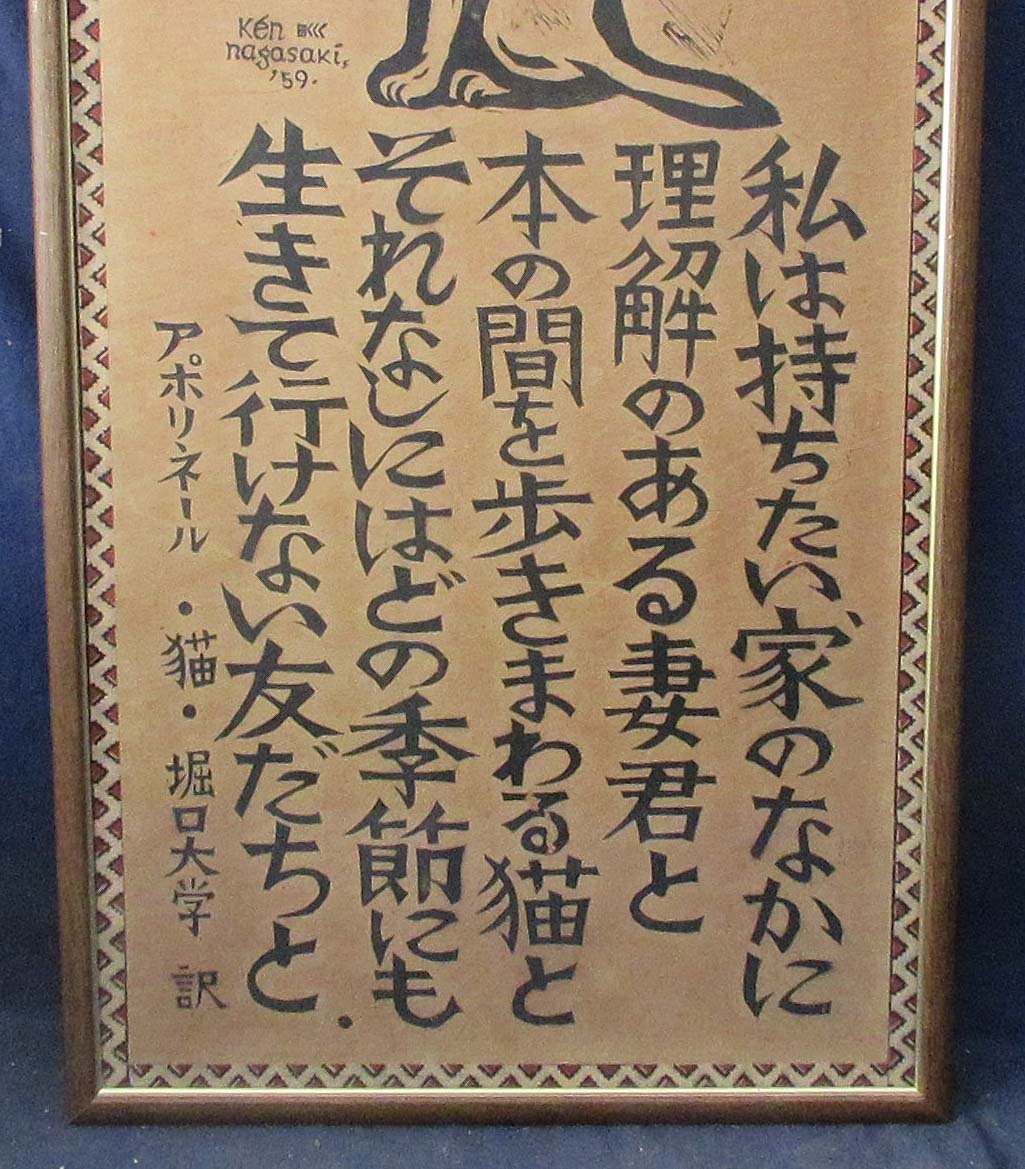 Kén
nagasaki,
'59.
私は持ちたい、家のなかに
理解のある妻君と
本の間を歩きまわる猫と
それなしにはどの季節にも
生きて行けない友だちと.
アポリネール・猫・堀口大学 訳